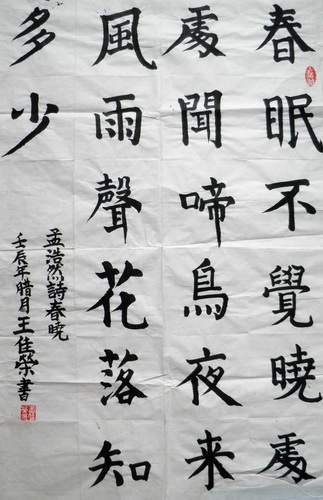 春眠不覺曉處
處聞啼鳥夜来
風雨聲花落知
多少
孟浩然詩春曉
壬辰年腊月王佳榮書